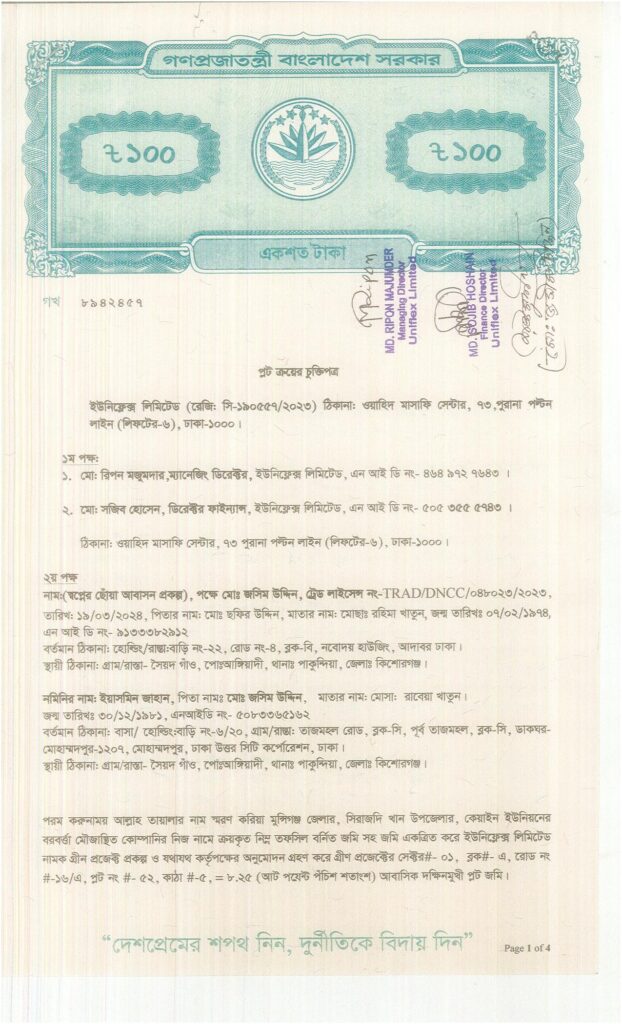 গণপ্রজাতন্ত্রী বাংলাদেশ সরকার
৳ ১০০
৳ ১০০
একশত টাকা
গখ ৮৯৪২৪৫৭
MD. RIPON MAJUMDER
Managing Director
Uniflex Limited
MD. SOJIB HOSHAIN
Finance Director
Uniflex Limited
প্লট ক্রয়ের চুক্তিপত্র
ইউনিফ্লেক্স লিমিটেড (রেজি: সি-১৯০৫৫৭/২০২৩) ঠিকানা: ওয়াহিদ মাসাফি সেন্টার, ৭৩,পুরানা পল্টন
লাইন (লিফটের-৬), ঢাকা-১০০০।
১ম পক্ষ:
১. মো: রিপন মজুমদার,ম্যানেজিং ডিরেক্টর, ইউনিফ্লেক্স লিমিটেড, এন আই ডি নং- ৪৬৪ ৯৭২ ৭৬৪৩ ।
২. মো: সজিব হোসেন, ডিরেক্টর ফাইন্যান্স, ইউনিফ্লেক্স লিমিটেড, এন আই ডি নং- ৫০৫ ৩৫৫ ৫৭৪৩ ।
ঠিকানা: ওয়াহিদ মাসাফি সেন্টার, ৭৩ পুরানা পল্টন লাইন (লিফটের-৬), ঢাকা-১০০০।
২য় পক্ষ
নাম:(স্বপ্নের ছোঁয়া আবাসন প্রকল্প), পক্ষে মোঃ জসিম উদ্দিন, ট্রেড লাইসেন্স নং-TRAD/DNCC/০৪৮০২৩/২০২৩,
তারিখ: ১৯/০৩/২০২৪, পিতার নাম: মোঃ ছফির উদ্দিন, মাতার নাম: মোছাঃ রহিমা খাতুন, জন্ম তারিখঃ ০৭/০২/১৯৭৪,
এন আই ডি নং- ৯১৩৩৩৮২৯১২
বর্তমান ঠিকানা: হোল্ডিং/রাস্তা:বাড়ি নং-২২, রোড নং-৪, ব্লক-বি, নবোদয় হাউজিং, আদাবর ঢাকা।
স্থায়ী ঠিকানা: গ্রাম/রাস্তা- সৈয়দ গাঁও, পোঃআঙ্গিয়াদী, থানাঃ পাকুন্দিয়া, জেলাঃ কিশোরগঞ্জ।
নমিনির নাম: ইয়াসমিন জাহান, পিতা নামঃ মোঃ জসিম উদ্দিন, মাতার নাম: মোসা: রাবেয়া খাতুন।
জন্ম তারিখঃ ৩০/১২/১৯৮১, এনআইডি নং- ৫০৮৩৩৬৫১৬২
বর্তমান ঠিকানা: বাসা/ হোল্ডিং:বাড়ি নং-৬/২০, গ্রাম/রাস্তা: তাজমহল রোড, ব্লক-সি, পূর্ব তাজমহল, ব্লক-সি, ডাকঘর-
মোহাম্মদপুর-১২০৭, মোহাম্মদপুর, ঢাকা উত্তর সিটি কর্পোরেশন, ঢাকা।
স্থায়ী ঠিকানা: গ্রাম/রাস্তা- সৈয়দ গাঁও, পোঃআঙ্গিয়াদী, থানাঃ পাকুন্দিয়া, জেলাঃ কিশোরগঞ্জ।
পরম করুনাময় আল্লাহ তায়ালার নাম স্মরণ করিয়া মুন্সিগঞ্জ জেলার, সিরাজদি খান উপজেলার, কেয়াইন ইউনিয়নের
বরবর্ত্তা মৌজাস্থিত কোম্পানির নিজ নামে ক্রয়কৃত নিম্ন তফসিল বর্নিত জমি সহ জমি একত্রিত করে ইউনিফ্লেক্স লিমিটেড
নামক গ্রীন প্রজেক্ট প্রকল্প ও যথাযথ কর্তৃপক্ষের অনুমোদন গ্রহণ করে গ্রীণ প্রজেক্টের সেক্টর#- ০১, ব্লক#- এ, রোড নং
#-১৬/এ, প্লট নং #- ৫২, কাঠা #-৫, = ৮.২৫ (আট পয়েন্ট পঁচিশ শতাংশ) আবাসিক দক্ষিনমুখী প্লট জমি।
“দেশপ্রেমের শপথ নিন, দুর্নীতিকে বিদায় দিন”
Page 1 of 4